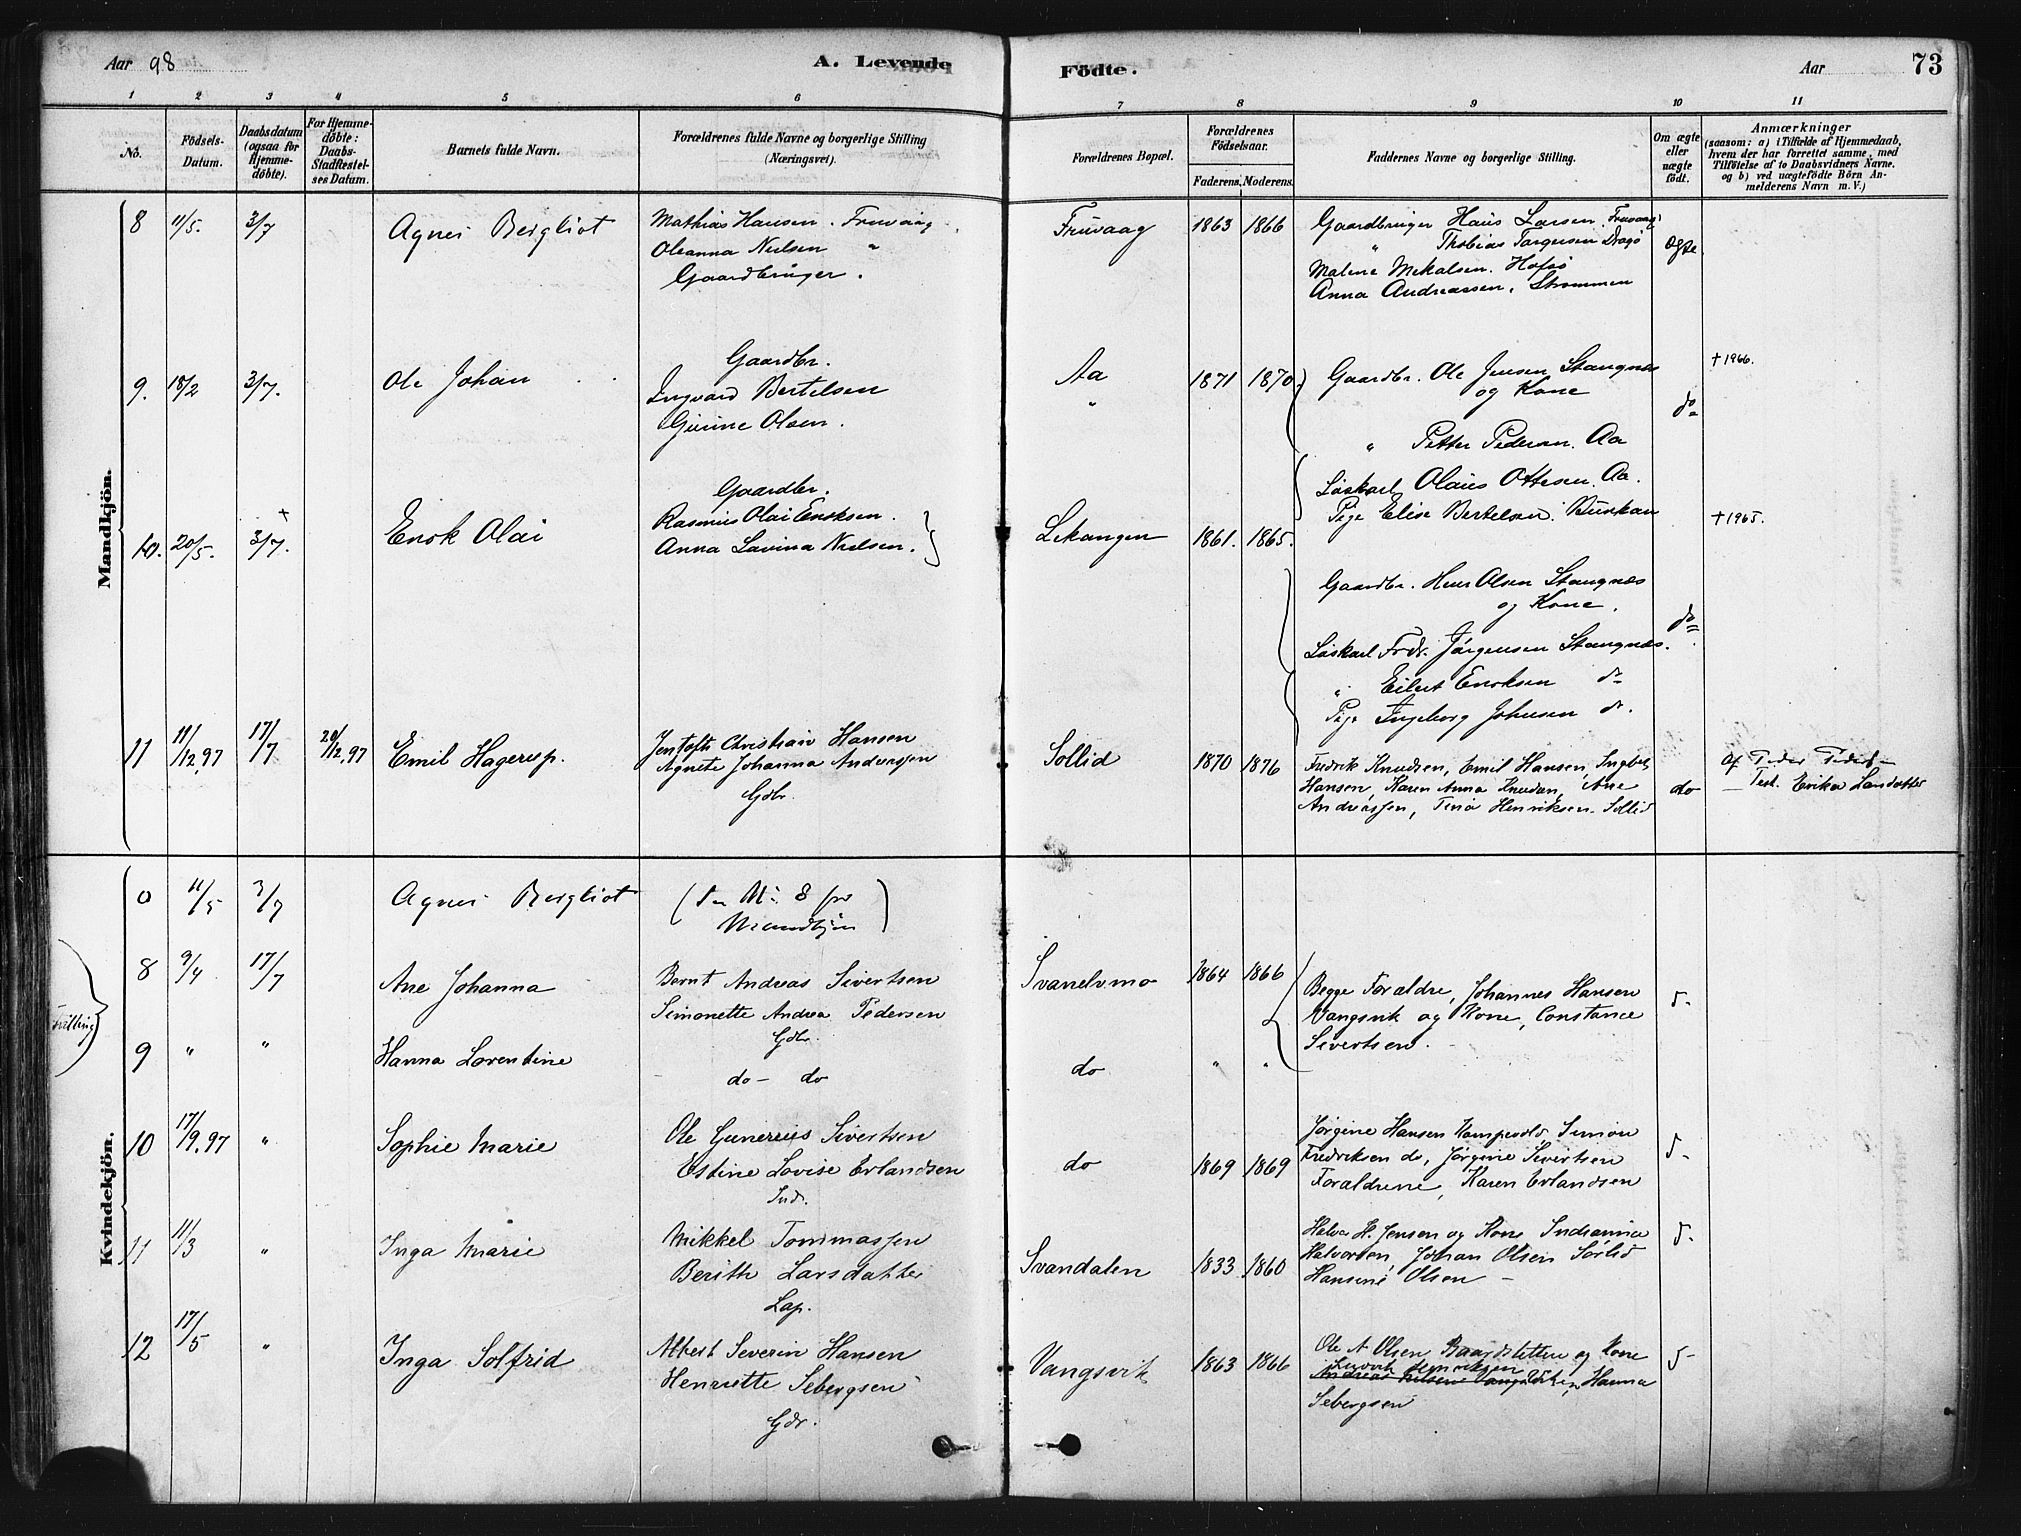 Aar 98
A. Levende
Fødte.
Aar
73
1 2 3 4 5 6 7 8 9 10 11
No.
Fødsels-Datum.
Daabsdatum (ogsaa for Hjemmedøbte).
For Hjemmedøbte: Daabs-Stadfestelses Datum.
Barnets fulde Navn.
Forældrenes fulde Navne og borgerlige Stilling (Næringsvei).
Forældrenes Bopæl.
Forældrenes Fødselsaar.
Faderens. Moderens.
Faddernes Navne og borgerlige Stilling.
Om ægte eller uægte født.
Anmærkninger
(saasom: a) i Tilfælde af Hjemmedaab, hvem der har forrettet samme, med Tilføielse af to Daabsvidners Navne. og b) ved uægtefødte Børn Anmelderens Navn m. V.)
Mandkjön.
8 11/5. 3/7 Agnes Bergliot
Mathias Hansen. Fruvaag
Oleanna Nielsen "
Gaardbruger.
Fruvaag 1863 1866
Gaardbruger Hans Larsen Fruvaag
" Thobias Torgersen Dragø
Malene Mikalsen. Hofsø
Anna Andreassen, Strømmen
Ægte
9. 18/2 3/7. Ole Johan
Gaardbr.
Ingvard Bertelsen
Gurine Olsen.
Aa 1871 1870
"
Gaardbr. Ole Jensen Stangnes
og Kone
" Petter Pedersen. Aa
Løskarl Olaus Ottesen. Aa.
Pige Elise Bertelsen.
do
† 1966.
10. 20/5. 3/7. + Enok Olai
Gaardbr.
Rasmus Olai Enoksen.
Anna Lavina Nielsen.
Lekangen 1861. 1865.
Gaardbr. Hans Olsen Stangnæs
og Kone.
Løskarl Fredr. Jørgensen Stangnæs.
" Eilert Enoksen do
Pige Ingeborg Johnsen do.
do
† 1965.
11 11/12.97 17/7 20/12.97 Emil Hagerup.
Jentoft Christian Hansen
Agnete Johanna Anderssen
Gdbr.
Sollid 1870 1876
Fredrik Knudsen, Emil Hansen, Ingeb.
Hansen, Karen Anna Knudsen, Ane
Andreassen, Tina Henriksen. Sollid
do
Af Peder Peders.
Test. Erika Larsdatter
Kvindekjön.
0 11/5 3/7 Agnes Bergliot
(se No. 8 for
Mandkjøn)
Tvilling
8 9/4 17/7 Ane Johanna
Bernt Andreas Sivertsen
Simonette Andrea Pedersen
Gdbr.
Svanelvmo 1864 1866
Begge Forældre, Johannes Hansen
Vangsvik og Kone, Constance
Sivertsen.
d-
9 " " Hanna Lorentine
do- do
do " "
10 17/9.97 " Sophie Marie
Ole Gunerius Sivertsen
Estine Lovise Erlandsen
Ind.
do 1869 1869
Jørgine Hansen Kampevold Simon
Fredriksen do, Jørgine Sivertsen
Forældrene, Karen Erlandsen
d-
11 11/3 " Inga Marie
Mikkel Tommassen
Berith Larsdatter
Lap.
Svandalen 1833 1860
Halvor H. Jensen og Kone Indianna
Halvorsen, Johan Olsen Sørlid
Hansine Olsen -
d-
12 17/5 " Inga Solfrid
Albert Severin Hansen
Henriette Sebergsen
Gdr.
Vangsvik 1863 1866
Ole A Olsen Baardsletten og Kone
Ludvik Henriksen
Andreas Nilsen Vangsvik, Hanna
Sebergsen
d-